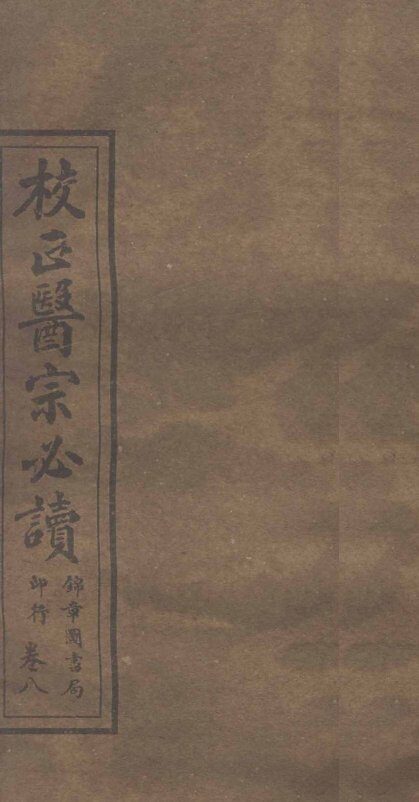 校正醫宗必讀
錦章圖書局
印行
卷八